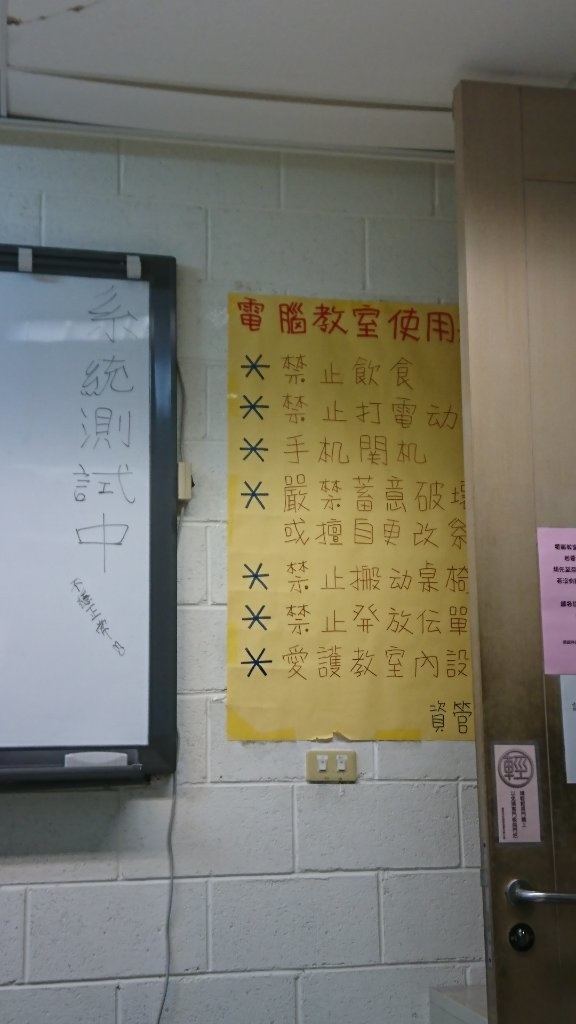 系統測試中
電腦教室使用
禁止飲食
禁止打電动
手机関机
嚴禁蓄意破壞
或擅自更改系
禁止搬动桌椅
禁止発放伝單
愛護教室內設
資管
輕